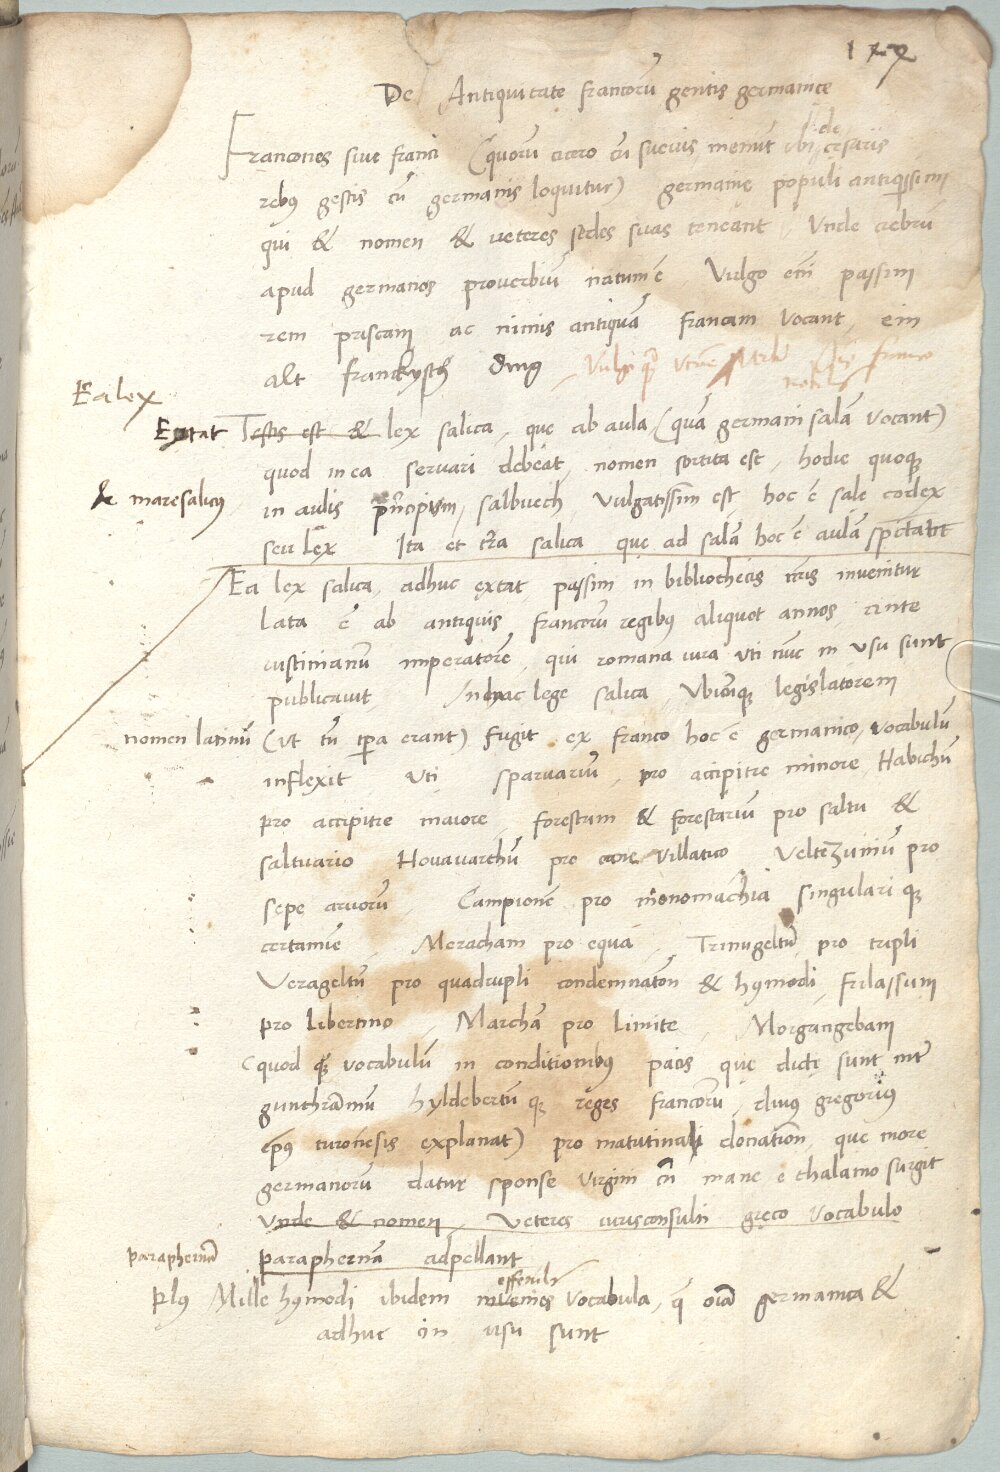 De Antiquitate francorū gentis germanice
Francones siue franci (quorū cicero cū sueuis meminit ubi de cesaris
rebus gestis cū germanis loquitur) germanię populi antiquissimi
qui & nomen & ueteres sedes suas teneant, Unde crebrū
apud germanos prouerbiū natum ē Vulgo em̄ passim
rem priscam ac nimis antiquā francam vocant, ein
alt franckysch ding,
Ea lex
Extat Testis est & lex salica, que ab aula (quā germani salā vocant)
quod in ea seruari debeat, nomen sortita est, hodie quoque
& maresalcus in aulis principum, salbuech vulgatissim est hoc ē sale codex
seu lex Ita et tr̄a salica que ad salā hoc ē aulā spectabit
Ea lex salica, adhuc extat, passim in bibliothecis nr̄is inuenitur
Lata ē ab antiquis francorū regibus aliquot annos, ante
iustinianū imperatorē, qui romana iura uti nūc in usu sunt
publicauit, In hac lege salica, Ubicūque legislatorem
nomen latinū (ut tū tp̄a erant) fugit ex franco hoc ē germanico, vocabulū
inflexit uti sparuariū, pro accipitre minore, Habichū
pro accipitre maiore, forestum & forestariū pro saltu &
saltuario Houauarthū pro cane villatico Veltezuniū pro
sepe aruorū, Campionē pro monomachia singulari que
certamine Meracham pro equa, Trinugeltū pro tripli
Verageltū pro quadrupli condemnation̄ & hymodi, frilassum
pro libertino, Marchā pro limite, Morgangebam
(quod vocabulū in conditionibus pacis que dictę sunt inter
gunthrāmū hyldebertū que reges francorū, diuus gregorius
ep̄us turonēsis explanat) pro matutinali donation̄, que more
germanorū datur sponse virgini cū mane e thalamo surgit
Unde & nomen, Veteres iurisconsulti gręco vocabulo
paraphernā paraphernā adpellant
Plus Mille hymodi ibidem inuenies vocabula, q̄ oīa germanica &
adhuc in usu sunt